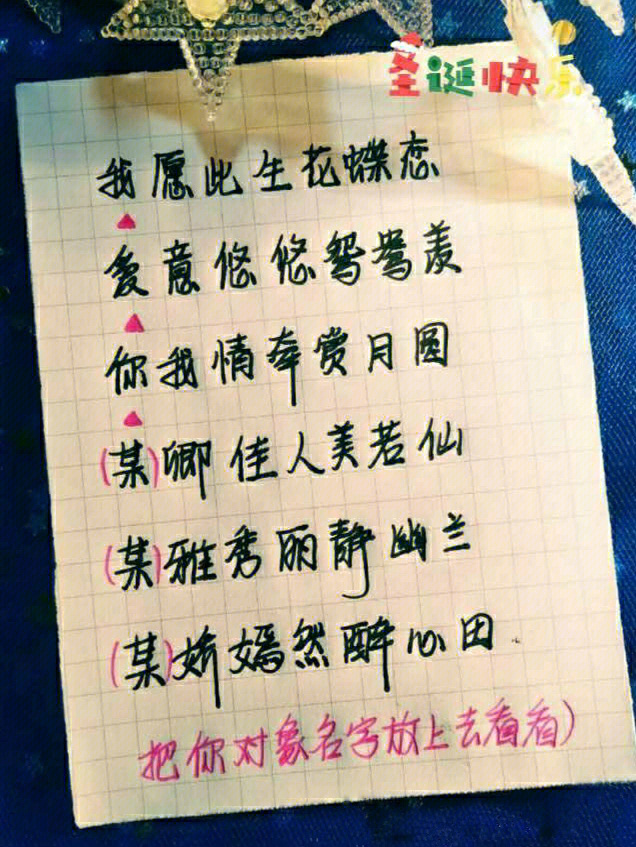 圣诞快乐
我愿此生花蝶恋
爱意悠悠鸳鸯羡
你我情牵赏月圆
(某)卿佳人美若仙
(某)雅秀丽静幽兰
(某)娇嫣然醉心田
把你对象名字放上去看看)